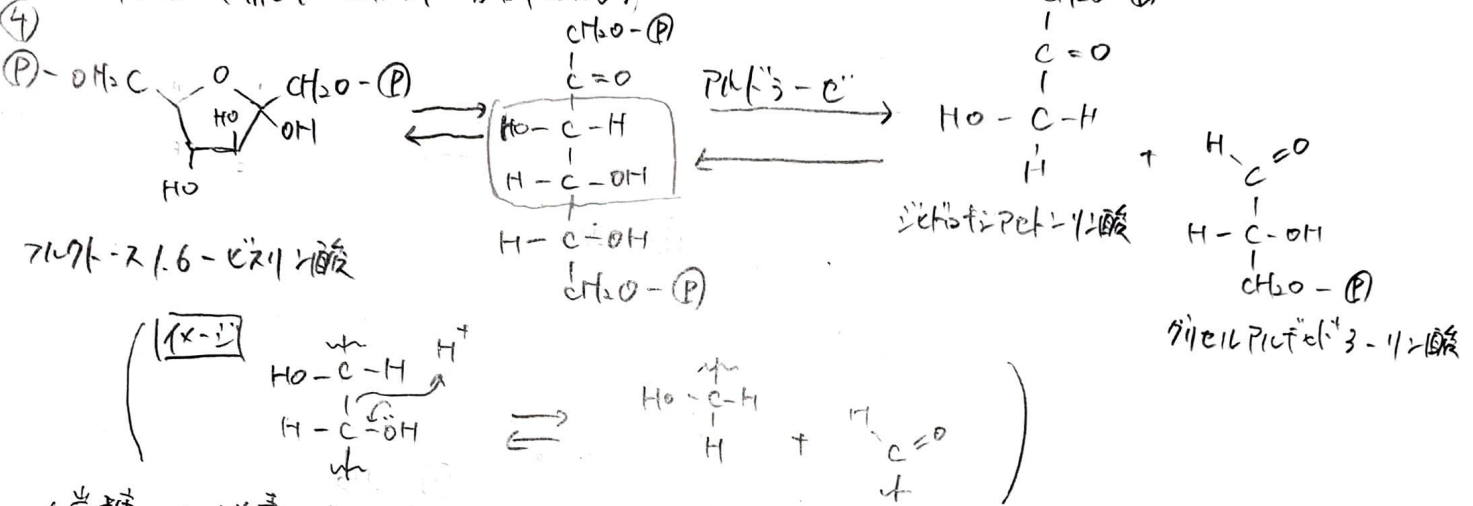 ④
Ⓟ-OH₂C O CH₂O-Ⓟ
HO OH
HO
フルクトース1.6-ビスリン酸
CH₂O-Ⓟ
C=O
HO-C-H
H-C-OH
H-C-OH
CH₂O-Ⓟ
アルドラーゼ
C=O
HO-C-H
H
ジヒドロキシアセトンリン酸
+
H C=O
H-C-OH
CH₂O-Ⓟ
グリセルアルデヒド3-リン酸
イメージ
HO-C-H H⁺
H-C-ÖH
HO-C-H
H
+
H C=O